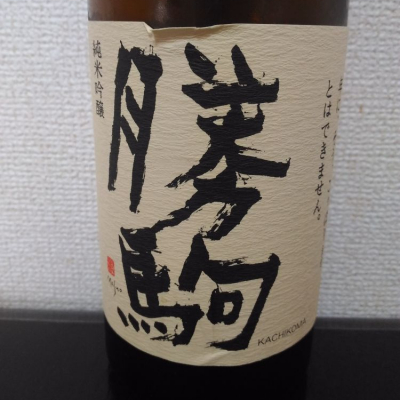 勝駒
純米吟醸
とはできません。
KACHIKOMA